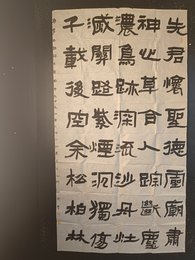 先君懷聖德靈廟肅
神心草合人蹤斷塵
濃鳥跡深流沙丹灶
滅關路紫煙沉獨傷
千載後空余松柏林